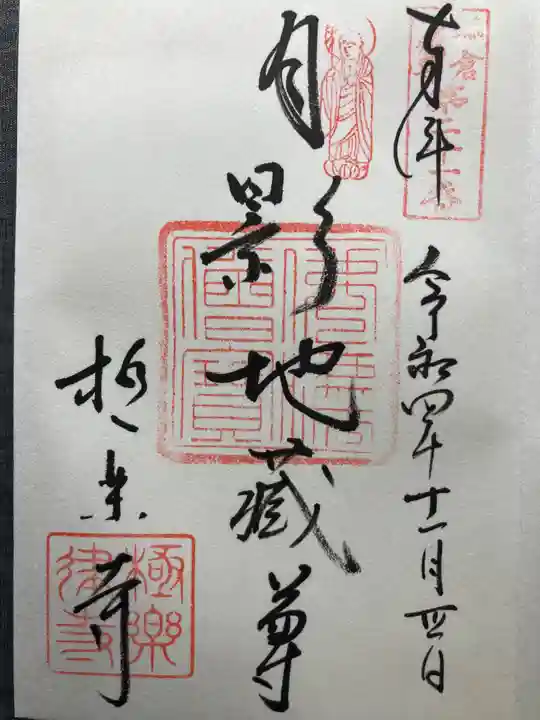 奉拝
令和四年十一月四日
月影地蔵尊
極楽寺
極楽律寺